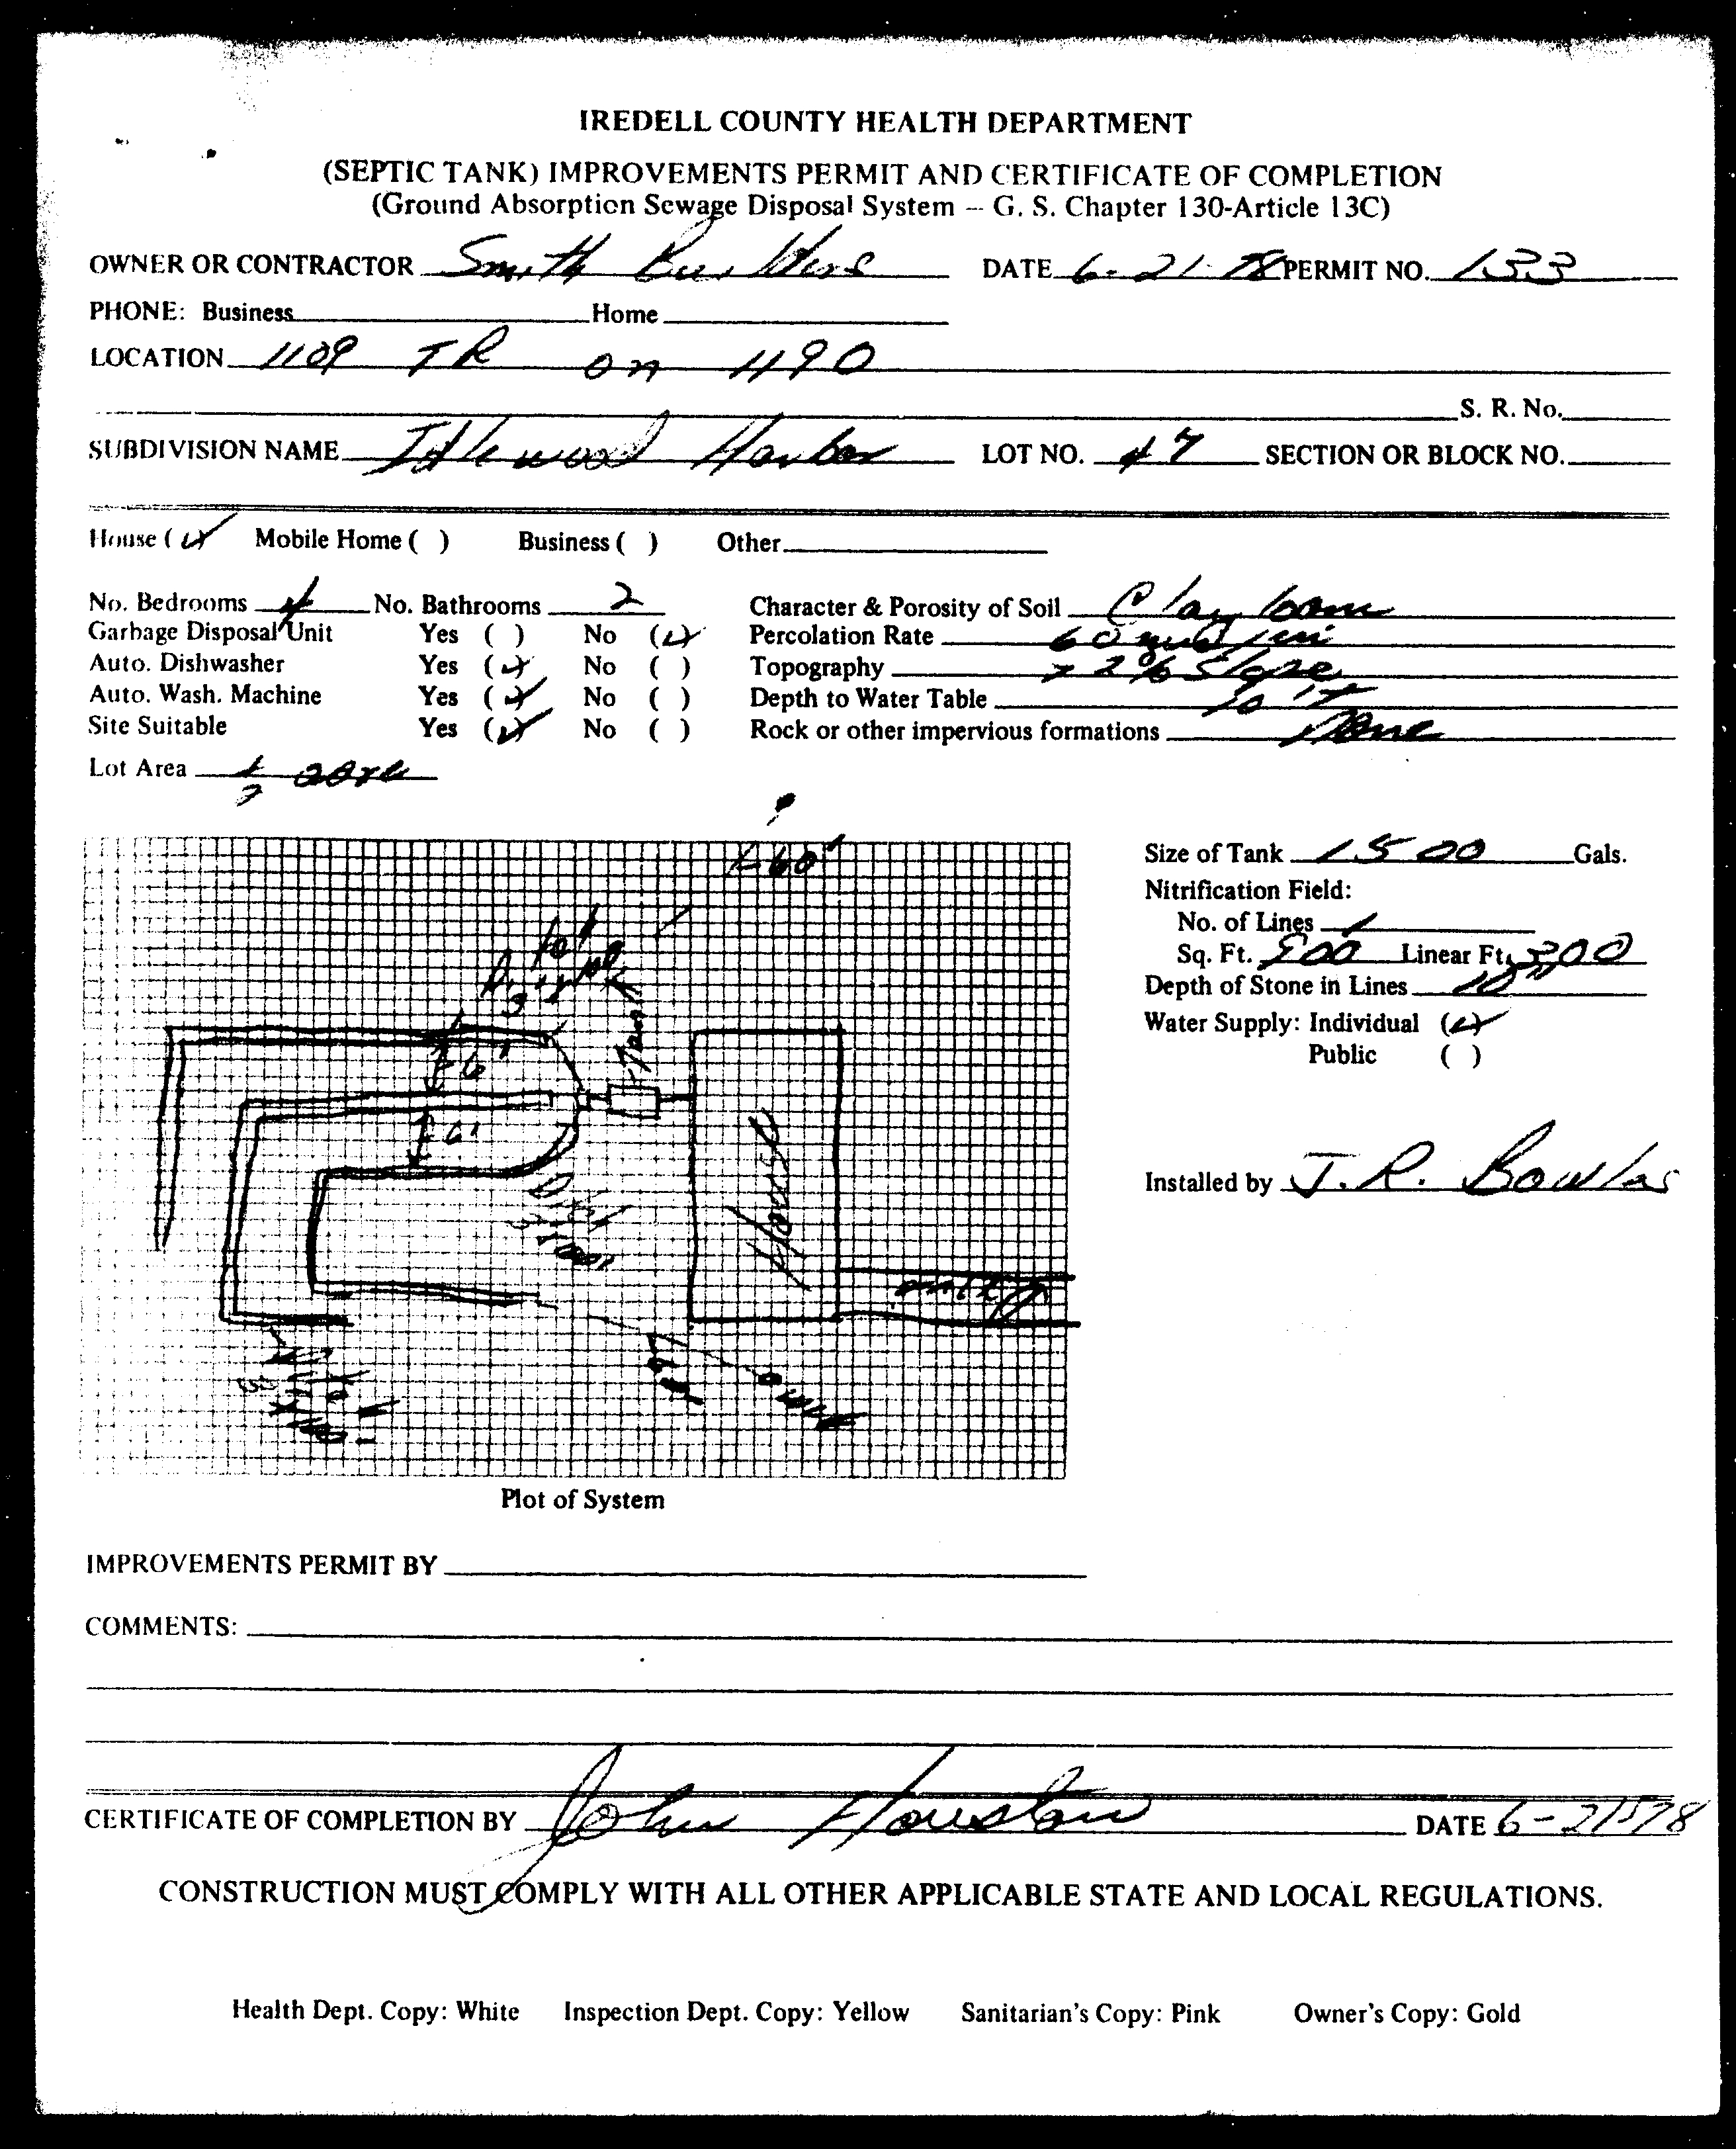 IREDELL COUNTY HEALTH DEPARTMENT
(SEPTIC TANK) IMPROVEMENTS PERMIT AND CERTIFICATE OF COMPLETION
(Ground Absorption Sewage Disposal System – G. S. Chapter 130-Article 13C)
OWNER OR CONTRACTOR Smith Builders DATE 6-21-78 PERMIT NO. 133
PHONE: Business Home
LOCATION 1109 TR on 1190
S. R. No.
SUBDIVISION NAME Idlewood Harbor LOT NO. #7 SECTION OR BLOCK NO.
House (✓) Mobile Home ( ) Business ( ) Other
No. Bedrooms 4 No. Bathrooms 2 Character & Porosity of Soil Clay loam
Garbage Disposal Unit Yes ( ) No (✓) Percolation Rate 60 min / in
Auto. Dishwasher Yes (✓) No ( ) Topography > 2% Slope
Auto. Wash. Machine Yes (✓) No ( ) Depth to Water Table
Site Suitable Yes (✓) No ( ) Rock or other impervious formations None
Lot Area 1/2 acre
60'
Tank
6'
6'
House
Size of Tank 1500 Gals.
Nitrification Field:
No. of Lines 1
Sq. Ft. 900 Linear Ft. 300
Depth of Stone in Lines 10"
Water Supply: Individual (✓)
Public ( )
Installed by J. R. Bowles
Plot of System
IMPROVEMENTS PERMIT BY
COMMENTS:
CERTIFICATE OF COMPLETION BY John Houston DATE 6-21-78
CONSTRUCTION MUST COMPLY WITH ALL OTHER APPLICABLE STATE AND LOCAL REGULATIONS.
Health Dept. Copy: White Inspection Dept. Copy: Yellow Sanitarian's Copy: Pink Owner's Copy: Gold